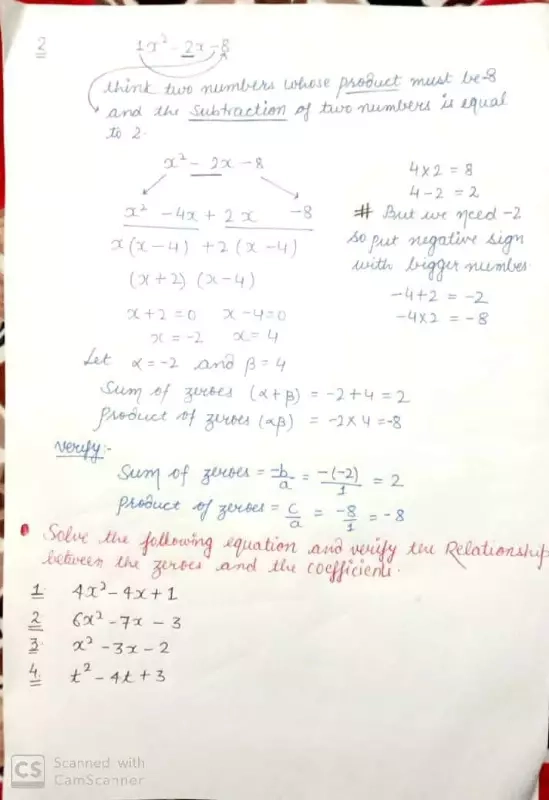 2
1x² - 2x - 8
think two numbers whose product must be -8
and the subtraction of two numbers is equal
to 2.
x² - 2x - 8
x² - 4x + 2x - 8
x(x-4) + 2(x-4)
(x+2) (x-4)
x+2=0 x-4=0
x=-2 x=4
4×2 = 8
4-2 = 2
# But we need -2
so put negative sign
with bigger number
-4+2 = -2
-4×2 = -8
Let α=-2 and β=4
Sum of zeroes (α+β) = -2+4 = 2
Product of zeroes (αβ) = -2×4 = -8
Verify:-
Sum of zeroes = -b/a = -(-2)/1 = 2
Product of zeroes = c/a = -8/1 = -8
• Solve the following equation and verify the Relationship
between the zeroes and the coefficient.
1. 4x² - 4x + 1
2. 6x² - 7x - 3
3. x² - 3x - 2
4. t² - 4t + 3
CS Scanned with
CamScanner